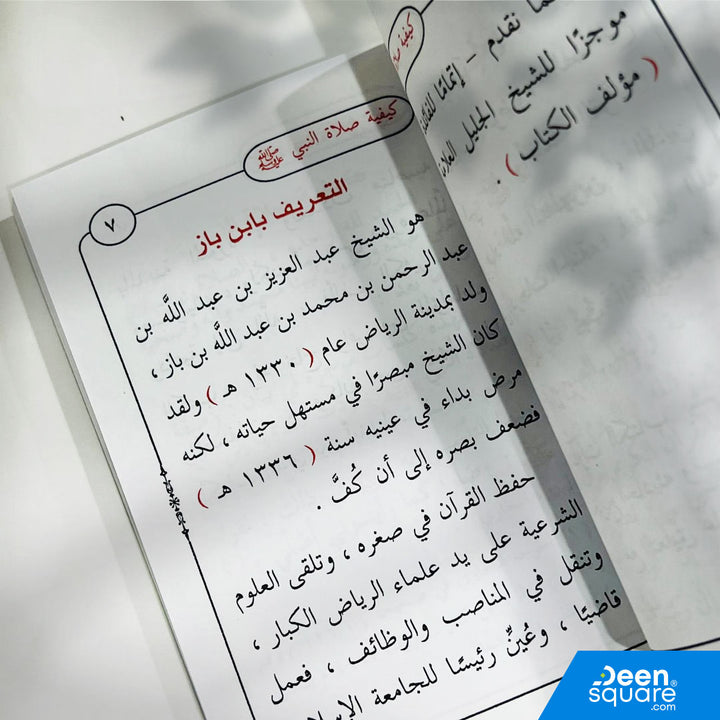 كيفية
مما تقدم – إتمامًا للفائدة
موجزًا للشيخ الجليل العلا
( مؤلف الكتاب ) .
كيفية صلاة النبي ﷺ
٧
التعريف بابن باز
هو الشيخ عبد العزيز بن عبد اللَّه بن
عبد الرحمن بن محمد بن عبد اللَّه بن باز ،
ولد بمدينة الرياض عام ( ١٣٣٠ هـ ) ولقد
كان الشيخ مبصرًا في مستهل حياته ، لكنه
مرض بداء في عينيه سنة ( ١٣٣٦ هـ )
فضعف بصره إلى أن كُفَّ .
حفظ القرآن في صغره ، وتلقى العلوم
الشرعية على يد علماء الرياض الكبار ،
وتنقل في المناصب والوظائف ، فعمل
قاضيًا ، وعُيِّنَ رئيسًا للجامعة الإسلا
Deen
square®
.com